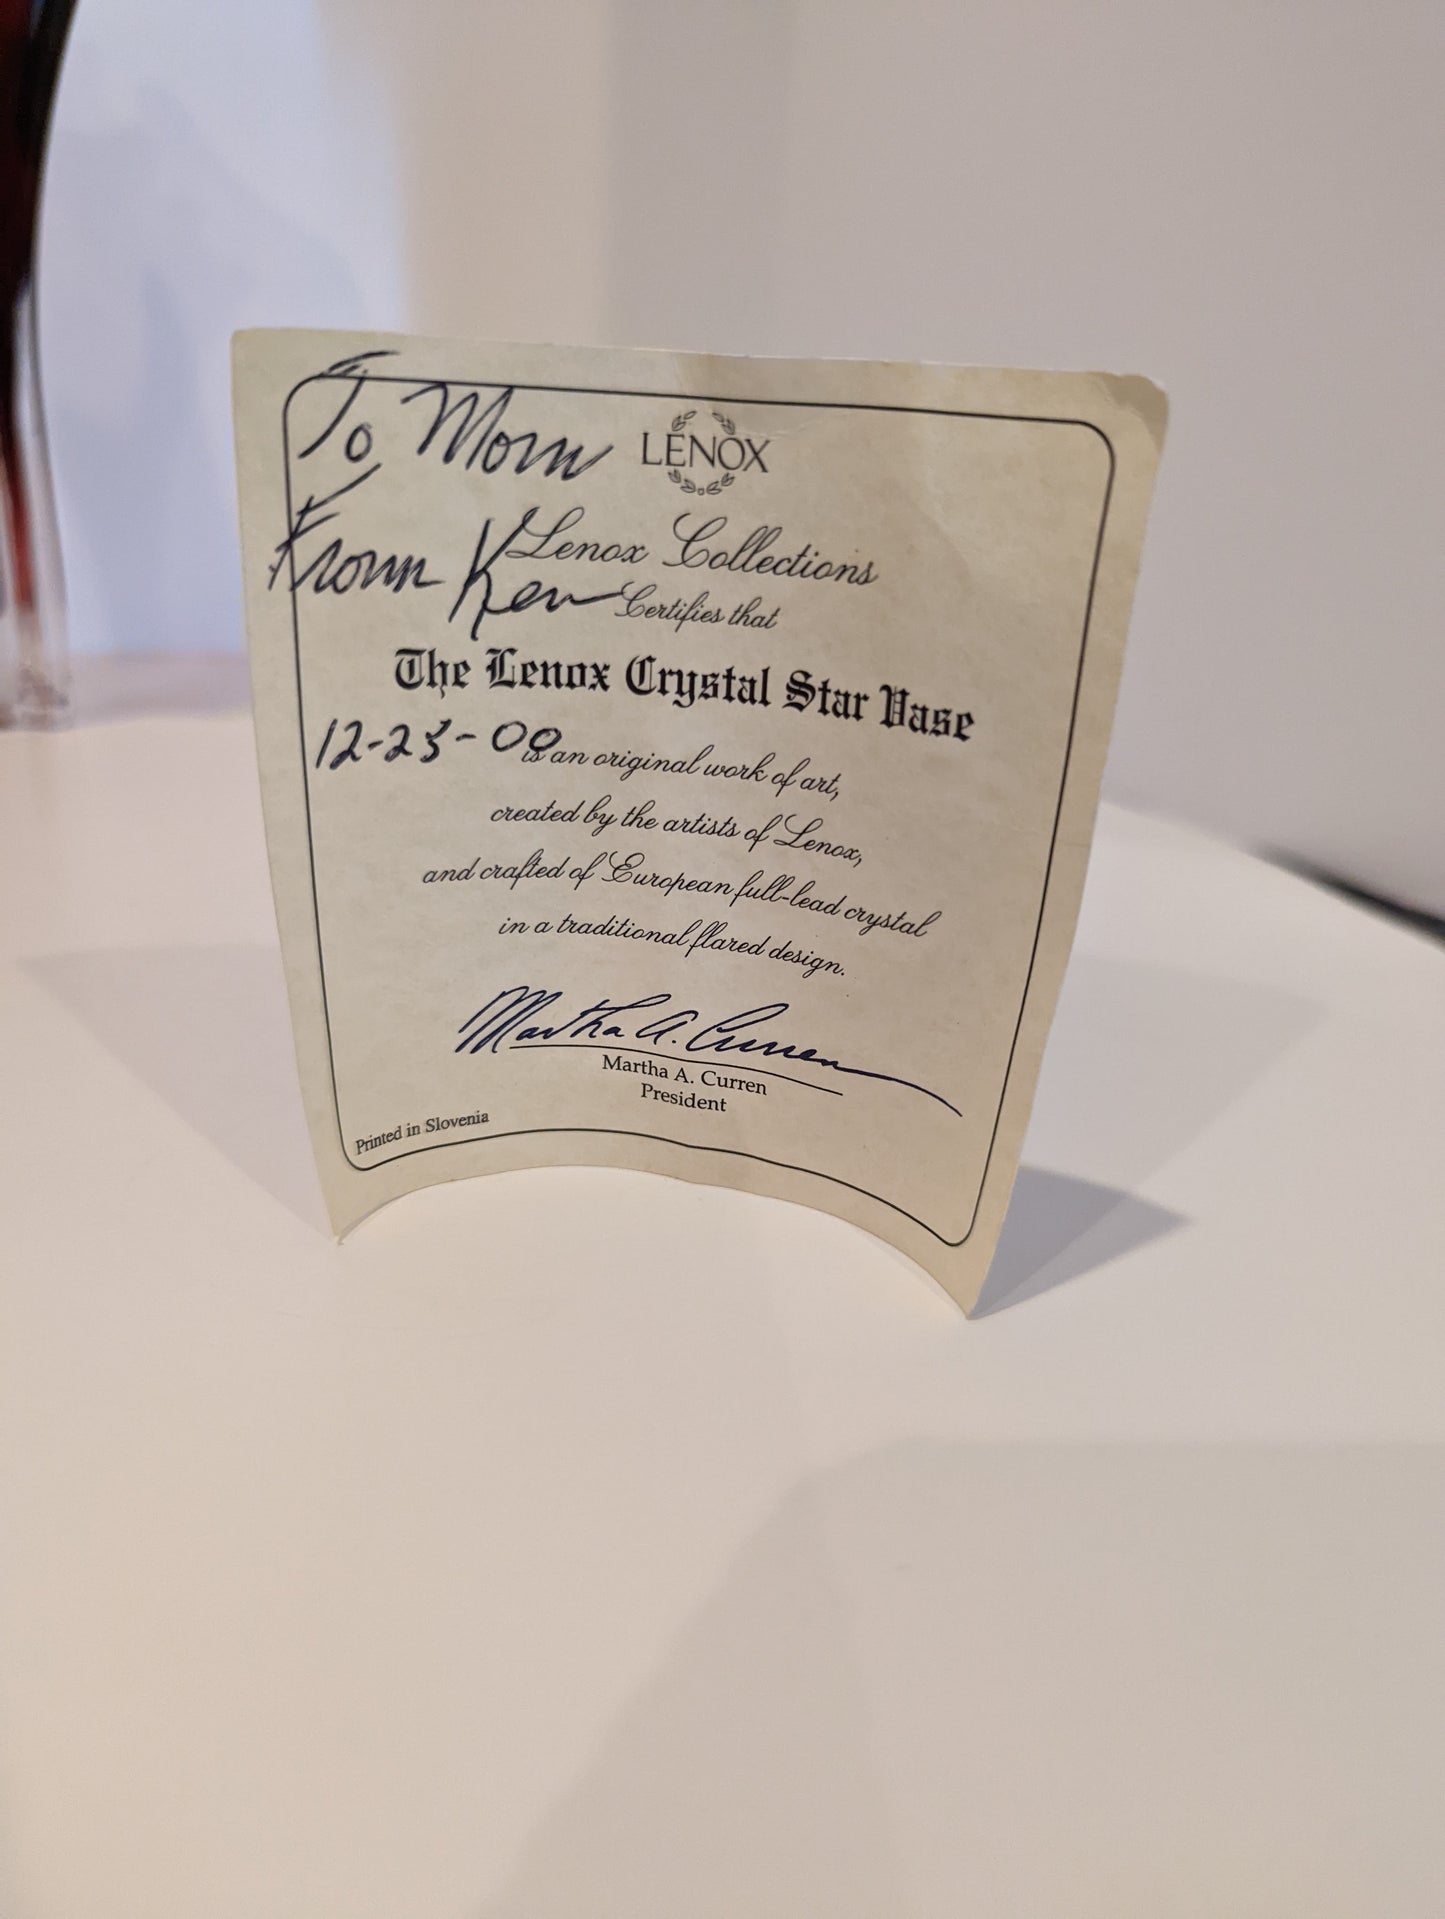 To Mom
LENOX
From Ken
Lenox Collections
Certifies that
The Lenox Crystal Star Vase
12-25-00
is an original work of art,
created by the artists of Lenox,
and crafted of European full-lead crystal
in a traditional flared design.
Martha A. Curren
Martha A. Curren
President
Printed in Slovenia